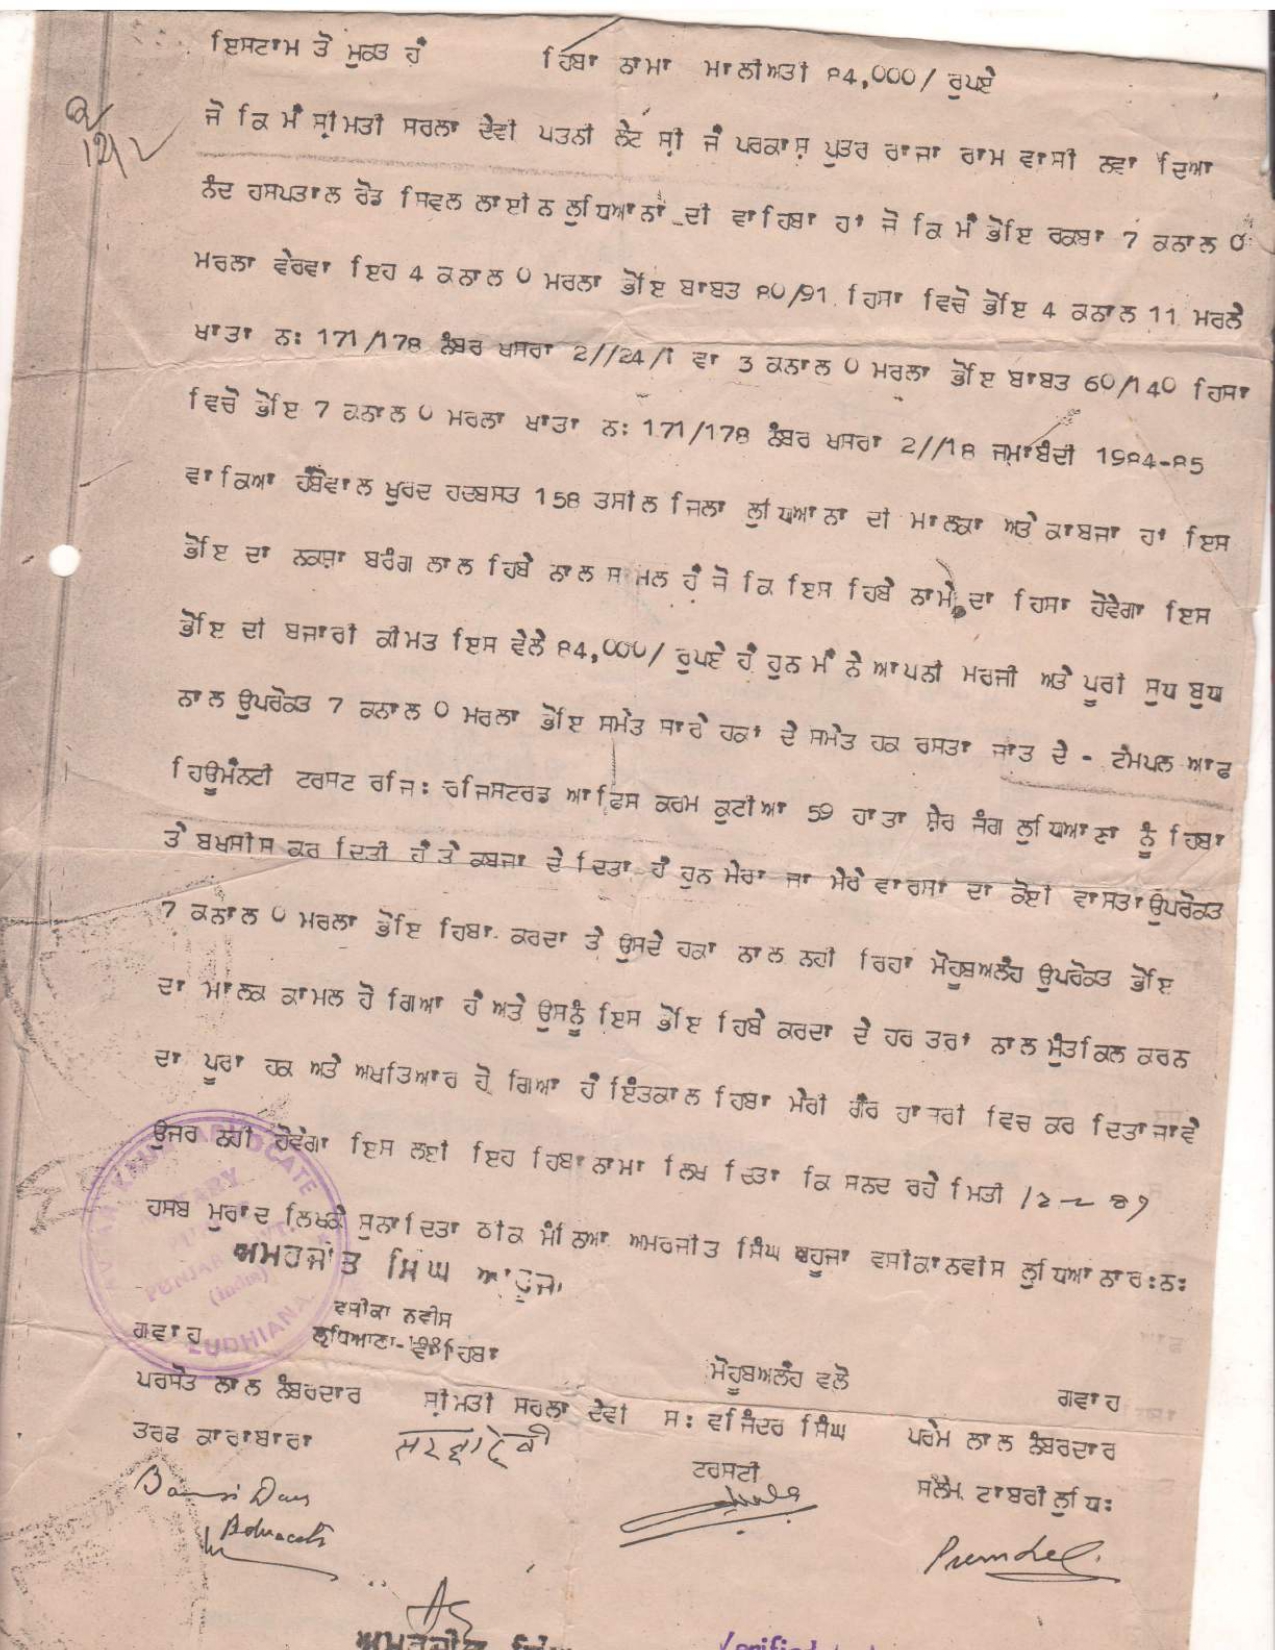 ਇਸਟਾਮ ਤੋ ਮੁਕਤ ਹੈ ਹਿਬਾ ਨਾਮਾ ਮਾਲੀਅਤੀ 84,000/ ਰੁਪਏ
ਜੋ ਕਿ ਮੈਂ ਸ੍ਰੀਮਤੀ ਸਰਲਾ ਦੇਵੀ ਪਤਨੀ ਲੇਟ ਸ੍ਰੀ ਜੈ ਪਰਕਾਸ਼ ਪੁਤਰ ਰਾਜਾ ਰਾਮ ਵਾਸੀ ਨਵਾ ਦਿਆ
ਨੰਦ ਹਸਪਤਾਲ ਰੋਡ ਸਿਵਲ ਲਾਈਨ ਲੁਧਿਆਨਾ ਦੀ ਵਾਹਿਬਾ ਹਾਂ ਜੋ ਕਿ ਮੈਂ ਭੋਇ ਰਕਬਾ 7 ਕਨਾਲ 0
ਮਰਲਾ ਵੇਰਵਾ ਇਹ 4 ਕਨਾਲ 0 ਮਰਲਾ ਭੋਇ ਬਾਬਤ 80/91 ਹਿਸਾ ਵਿਚੋ ਭੋਇ 4 ਕਨਾਲ 11 ਮਰਲੇ
ਖਾਤਾ ਨ: 171/178 ਨੰਬਰ ਖਸਰਾ 2//24/1 ਵਾ 3 ਕਨਾਲ 0 ਮਰਲਾ ਭੋਇ ਬਾਬਤ 60/140 ਹਿਸਾ
ਵਿਚੋ ਭੋਇ 7 ਕਨਾਲ 0 ਮਰਲਾ ਖਾਤਾ ਨ: 171/178 ਨੰਬਰ ਖਸਰਾ 2//18 ਜਮਾਬੰਦੀ 1984-85
ਵਾਕਿਆ ਹੰਬੋਵਾਲ ਖੁਰਦ ਹਦਬਸਤ 158 ਤਸੀਲ ਜਿਲਾ ਲੁਧਿਆਨਾ ਦੀ ਮਾਲਕਾ ਅਤੇ ਕਾਬਜਾ ਹਾਂ ਇਸ
ਭੋਇ ਦਾ ਨਕਸ਼ਾ ਬਰੰਗ ਲਾਲ ਹਿਬੇ ਨਾਲ ਸਾਮਲ ਹੈ ਜੋ ਕਿ ਇਸ ਹਿਬੇ ਨਾਮੇ ਦਾ ਹਿਸਾ ਹੋਵੇਗਾ ਇਸ
ਭੋਇ ਦੀ ਬਜਾਰੀ ਕੀਮਤ ਇਸ ਵੇਲੇ 84,000/ ਰੁਪਏ ਹੈ ਹੁਨ ਮੈਂ ਨੇ ਆਪਨੀ ਮਰਜੀ ਅਤੇ ਪੂਰੀ ਸੁਧ ਬੁਧ
ਨਾਲ ਉਪਰੋਕਤ 7 ਕਨਾਲ 0 ਮਰਲਾ ਭੋਇ ਸਮੇਤ ਸਾਰੇ ਹਕਾਂ ਦੇ ਸਮੇਤ ਹਕ ਰਸਤਾ ਜਾਤ ਦੇ - ਟੈਮਪਲ ਆਫ
ਹਿਊਮੈਨਟੀ ਟਰਸਟ ਰਜਿ: ਰਜਿਸਟਰਡ ਆਫਿਸ ਕਰਮ ਕੁਟੀਆ 59 ਹਾਤਾ ਸ਼ੇਰ ਜੰਗ ਲੁਧਿਆਣਾ ਨੂੰ ਹਿਬਾ
ਤੇ ਬਖਸੀਸ ਕਰ ਦਿਤੀ ਹੈ ਤੇ ਕਬਜਾ ਦੇ ਦਿਤਾ ਹੈ ਹੁਨ ਮੇਰਾ ਜਾ ਮੇਰੇ ਵਾਰਸਾ ਦਾ ਕੋਈ ਵਾਸਤਾ ਉਪਰੋਕਤ
7 ਕਨਾਲ 0 ਮਰਲਾ ਭੋਇ ਹਿਬਾ ਕਰਦਾ ਤੇ ਉਸਦੇ ਹਕਾ ਨਾਲ ਨਹੀ ਰਿਹਾ ਮੋਹੂਬਅਲੈਹ ਉਪਰੋਕਤ ਭੋਇ
ਦਾ ਮਾਲਕ ਕਾਮਲ ਹੋ ਗਿਆ ਹੈ ਅਤੇ ਉਸਨੂੰ ਇਸ ਭੋਇ ਹਿਬੇ ਕਰਦਾ ਦੇ ਹਰ ਤਰਾਂ ਨਾਲ ਮੁੰਤਕਿਲ ਕਰਨ
ਦਾ ਪੂਰਾ ਹਕ ਅਤੇ ਅਖਤਿਆਰ ਹੋ ਗਿਆ ਹੈ ਇੰਤਕਾਲ ਹਿਬਾ ਮੇਰੀ ਗੈਰ ਹਾਜਰੀ ਵਿਚ ਕਰ ਦਿਤਾ ਜਾਵੇ
ਉਜਰ ਨਹੀ ਹੋਵੇਗਾ ਇਸ ਲਈ ਇਹ ਹਿਬਾਨਾਮਾ ਲਿਖ ਦਿਤਾ ਕਿ ਸਨਦ ਰਹੇ ਮਿਤੀ 12-2-87
ਹਸਬ ਮੁਰਾਦ ਲਿਖਕੇ ਸੁਨਾਦਿਤਾ ਠੀਕ ਮੰਨਿਆ ਅਮਰਜੀਤ ਸਿੰਘ ਅਹੂਜਾ ਵਸੀਕਾਨਵੀਸ ਲੁਧਿਆਨਾ ਰ:ਨ:
ਅਮਰਜੀਤ ਸਿੰਘ ਆਹੂਜਾ
ਵਸੀਕਾ ਨਵੀਸ
ਗਵਾਹ ਲੁਧਿਆਣਾ- ਵਾਹਿਬਾ ਮੋਹੂਬਅਲੈਹ ਵਲੋ ਗਵਾਹ
ਪਰਸੋਤ ਲਾਲ ਨੰਬਰਦਾਰ ਸ੍ਰੀਮਤੀ ਸਰਲਾ ਦੇਵੀ ਸ: ਵਜਿੰਦਰ ਸਿੰਘ ਪਰੇਮ ਲਾਲ ਨੰਬਰਦਾਰ
ਤਰਫ ਕਾਰਾਬਾਰਾ ਸਰਲਾ ਦੇਵੀ ਟਰਸਟੀ ਸਲੇਮ ਟਾਬਰੀ ਲੁਧਿ:
Bansi Das
Advocate
Prem Lal
ADVOCATE
NOTARY
PUNJAB GOVT.
(India)
LUDHIANA
ਅਮਰਜੀਤ ਸਿੰਘ
Verified